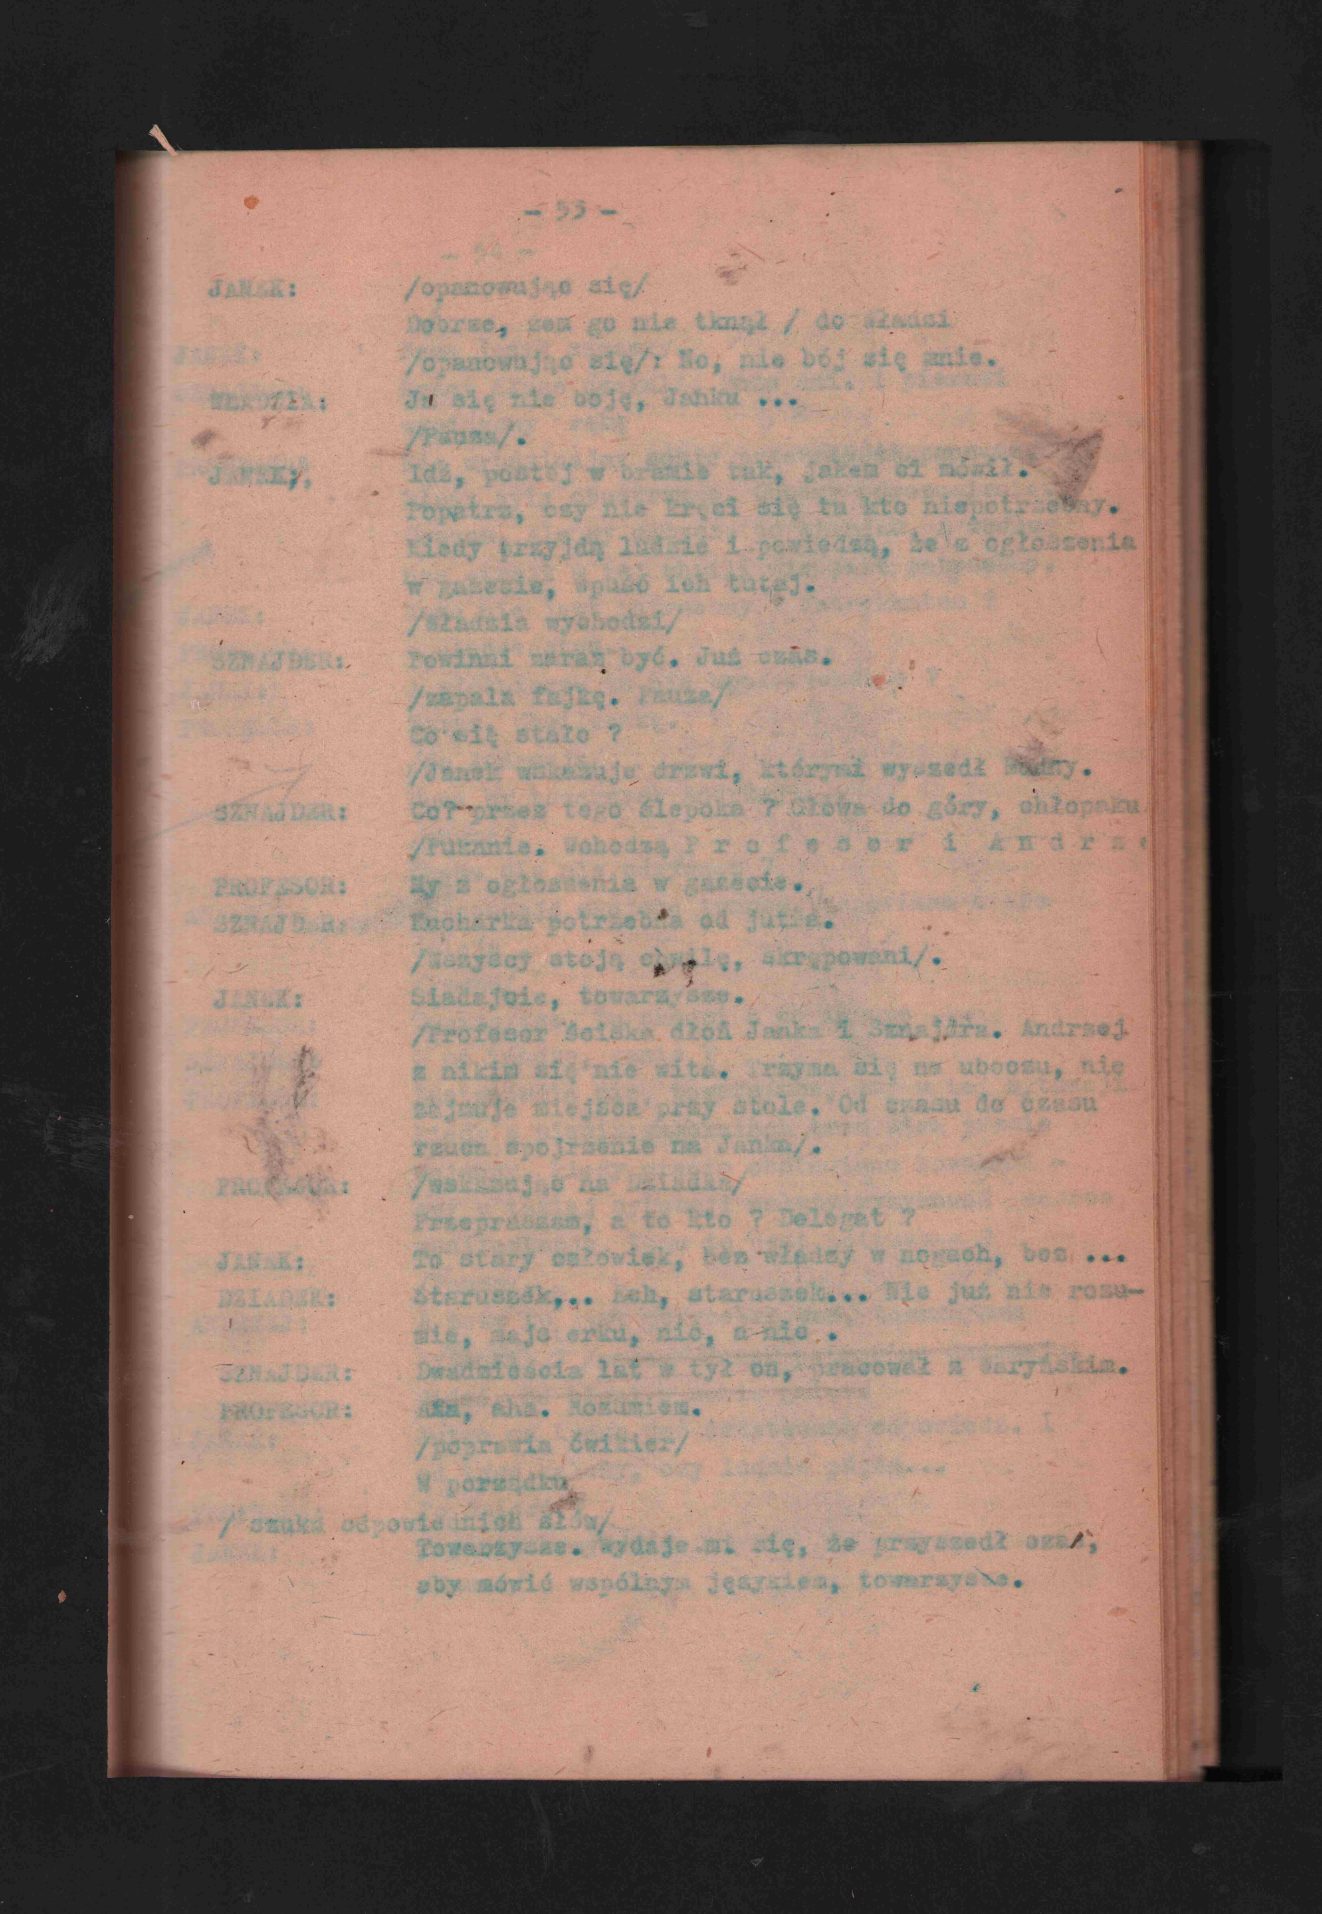 - 53 -
JANEK: /opanowując się/
Dobrze, żem go nie tknął / do Władzi
/opanowując się/: No, nie bój się mnie.
WŁADZIA: Ja się nie boję, Janku ...
/Pauza/.
JANEK: Idź, postój w bramie tak, jakem ci mówił.
Popatrz, czy nie kręci się tu kto niepotrzebny.
Kiedy przyjdą ludzie i powiedzą, że z ogłoszenia
w gazecie, wpuść ich tutaj.
/Władzia wychodzi/
SZNAJDER: Powinni zaraz być. Już czas.
/zapala fajkę. Pauza/
Co się stało ?
/Janek wskazuje drzwi, którymi wyszedł
SZNAJDER: Co? przez tego ślepoka ? Głowa do góry, chłopaku
/Pukanie. Wchodzą P r o f e s o r i A n d r z e
PROFESOR: My z ogłoszenia w gazecie.
SZNAJDER: Kucharka potrzebna od jutra.
/Wszyscy stoją chwilę, skrępowani/.
JANEK: Siadajcie, towarzysze.
/Profesor ściska dłoń Janka i Sznajdra. Andrzej
z nikim się nie wita. Trzyma się na uboczu, nie
zajmuje miejsca przy stole. Od czasu do czasu
rzuca spojrzenie na Janka/.
PROFESOR: /wskazując na Dziadka/
Przepraszam, a to kto ? Delegat ?
JANEK: To stary człowiek, bez władzy w nogach, bez ...
DZIADEK: Staruszek,.. Ech, staruszek... Nie już nie rozu-
mie, maje erku, nic, a nic .
SZNAJDER: Dwadzieścia lat w tył on, pracował z Waryńskim.
PROFESOR: Aha, aha. Rozumiem.
/poprawia ćwikier/
W porządku
/ szuka odpowiednich słów/
Towarzysze. Wydaje mi się, że przyszedł czas,
aby mówić wspólnym językiem, towarzysze.